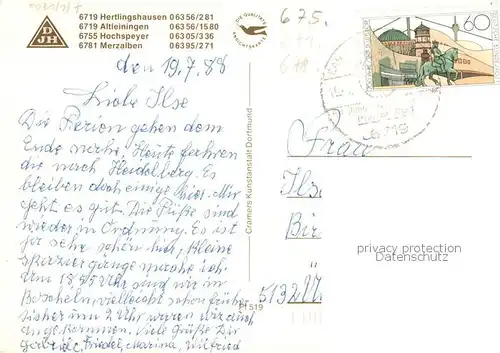 6719 Hertlingshausen 06356/281
6719 Altleiningen 06356/1580
6755 Hochspeyer 06305/336
6781 Merzalben 06395/271
D
JH
DIE QUALITÄTS
ANSICHTSKARTE
675.
60
6719
den 19.7.88
Liebe Ilse
Die Ferien gehen dem
Ende nahe, Heute fahren
die nach Heidelberg. Es
bleiben doch einige hier. Mir
geht es gut. Die Füße sind
wieder in Ordnung. Es ist
ja sehr schön hier, Kleine
spaziergänge mache ich.
Um 18,45 Uhr sind wir in
vielleicht schon früher
bisher um 2 Uhr waren wir auch
angekommen. Viele Grüße Dir
Friedel, Marina, Wilfried
Cramers Kunstanstalt Dortmund
PI 519
Frau
Ils
Bi
5132 Ü
privacy protection
Datenschutz